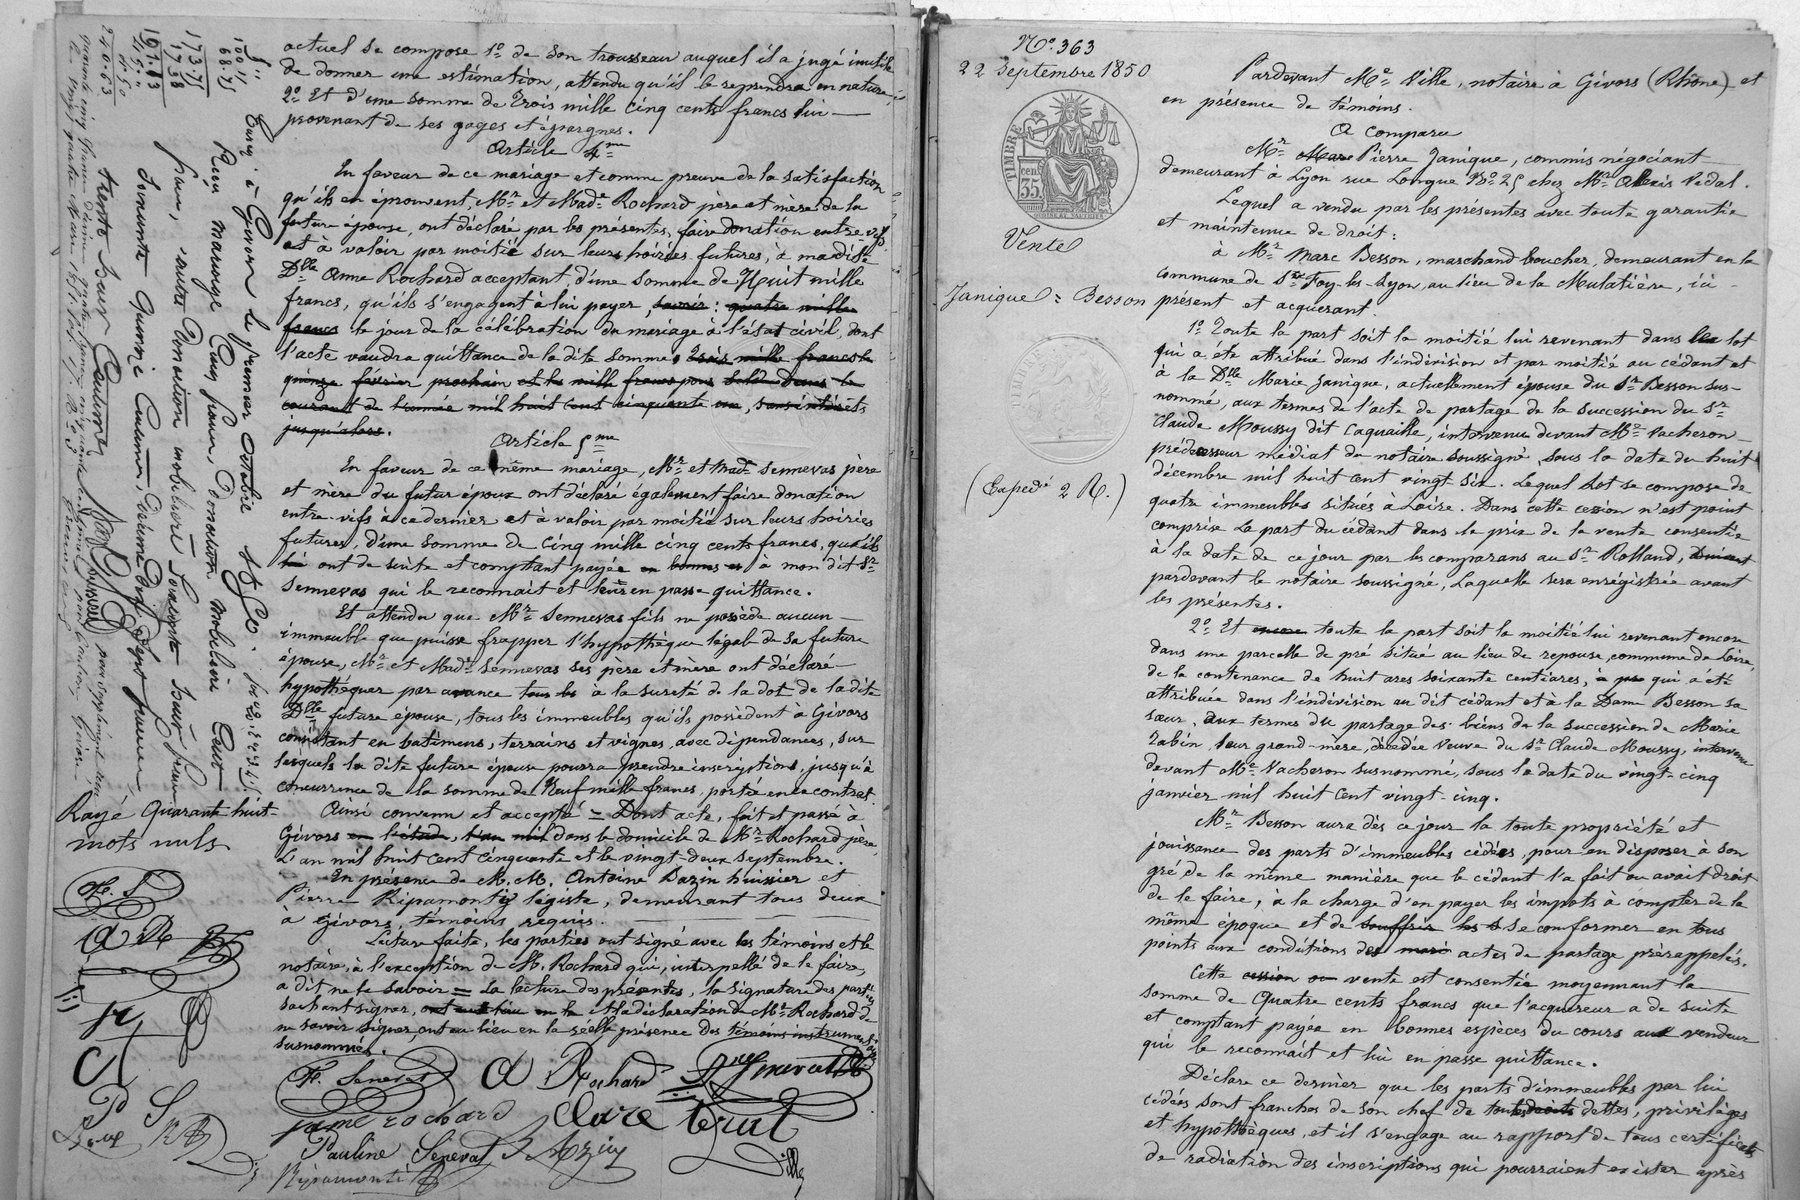 actuel se compose 1° de son trousseau auquel il a jugé inutile
de donner une estimation, attendu qu'il le reprendra en nature,
2° Et d'une somme de Trois mille cinq cents francs lui
provenant de ses gages et épargnes.
Article 4me
En faveur de ce mariage et comme preuve de la satisfaction
qu'ils en éprouvent, Mr et Made Rochard père et mère de la
future épouse, ont déclaré par les présentes, faire donation entre vifs
et à valoir par moitié sur leurs hoiries futures, à madite
Dlle Anne Rochard acceptant, d'une somme de Huit mille
francs, qu'ils s'engagent à lui payer, savoir : quatre mille
francs le jour de la célébration du mariage à l'état civil, dont
l'acte vaudra quittance de la dite somme, trois mille francs le
quinze février prochain et les mille francs pour solde dans le
courant de l'année mil huit cent cinquante un, sans intérêts
jusqu'alors.
Article 5me
En faveur de ce même mariage, Mr et Made Sennevas père
et mère du futur époux ont déclaré également faire donation
entre-vifs à ce dernier et à valoir par moitié sur leurs hoiries
futures, d'une somme de cinq mille cinq cents francs, qu'ils
lui ont de suite et comptant payée en bonnes es à mon dit Sr
Sennevas qui le reconnait et leur en passe quittance.
Et attendu que Mr Sennevas fils ne possède aucun
immeuble que puisse frapper l'hypothèque légale de sa future
épouse, Mr et Made Sennevas ses père et mère ont déclaré
hypothéquer par avance tous les à la sureté de la dot de la dite
Dlle future épouse, tous les immeubles qu'ils possèdent à Givors
consistant en batimens, terrains et vignes, avec dépendances, sur
lesquels la dite future épouse pourra prendre inscriptions, jusqu'à
concurrence de la somme de Neuf mille francs, portée en ce contrat.
Ainsi convenu et accepté = Dont acte, fait et passé à
Givors en l'étude, l'an mil dans le domicile de Mr Rochard père,
L'an mil huit cent cinquante et le vingt-deux septembre.
En présence de M.M. Antoine Bazin huissier et
Pierre Ripamonty légiste, demeurant tous deux
à Givors, témoins requis.
Lecture faite, les parties ont signé avec les témoins et le
notaire, à l'exception de M. Rochard qui, interpellé de le faire,
a dit ne le savoir = La lecture des présentes, la signature des parties
sachant signer, ont eu lieu en la et la déclaration de Mr Rochard de
ne savoir signer, ont eu lieu en la réelle présence des témoins instrumentaires
susnommés.
F. Senevas A Rochard
jame rochard Clare
Pauline Senevat Bazin
Ripamonti Ville
Rayé Quarante huit
mots nuls
F. S
A R
P S
10 11
68.75
1737.5
17.38
191.13
240.63
Enreg. à Givors le premier octobre
Reçu mariage Cinq francs, Donation mobilière Cent
francs, autre Donation mobilière Soixante huit francs
Soixante Quinze Centimes, décime Dix Sept francs
trente huit Centimes
N° 363
22 Septembre 1850
TIMBRE
35
Vente
Janique = Besson
(Expédié 2 R.)
Pardevant Me Ville, notaire à Givors (Rhône) et
en présence de témoins.
A Comparu
Mr Marc Pierre Janique, commis négociant
demeurant à Lyon rue Longue N° 25 chez Mr Alexis Vidal.
Lequel a vendu par les présentes avec toute garantie
et maintenue de droit :
à Mr Marc Besson, marchand boucher, demeurant en la
commune de Ste Foy-les-Lyon, au lieu de la Mulatière, ici
présent et acquerant.
1° Toute la part soit la moitié lui revenant dans le lot
qui a été attribué dans l'indivision et par moitié au cédant et
à la Dlle Marie Janique, actuellement épouse du Sr Besson sus-
nommé, aux termes de l'acte de partage de la succession du Sr
Claude Moussy dit Caquaille, intervenu devant Me Vacheron
prédécesseur médiat du notaire soussigné, sous la date du huit
décembre mil huit cent vingt six. Lequel lot se compose de
quatre immeubles situés à Loire. Dans cette cession n'est point
comprise la part du cédant dans le prix de la vente consentie
à la date de ce jour par les comparans au Sr Rolland, suivant
pardevant le notaire soussigné, laquelle sera enrégistrée avant
les présentes.
2° Et encore toute la part soit la moitié lui revenant encore
dans une parcelle de pré situé au lieu de repouse, commune de Loire,
de la contenance de huit ares soixante centiares, qui a été
attribuée dans l'indivision au dit cédant et à la Dame Besson sa
sœur, aux termes du partage des biens de la succession de Marie
Zabin leur grand-mère, décédée veuve du Sr Claude Moussy, intervenu
devant Me Vacheron susnommé, sous la date du vingt-cinq
janvier mil huit cent vingt-cinq.
Mr Besson aura dès ce jour la toute propriété et
jouissance des parts d'immeubles cédées, pour en disposer à son
gré de la même manière que le cédant l'a fait ou avait droit
de le faire, à la charge d'en payer les impots à compter de la
même époque et de souffrir les S se conformer en tous
points aux conditions des mari actes de partage prérappelés.
Cette cession ou vente est consentie moyennant la
somme de Quatre cents francs que l'acquereur a de suite
et comptant payée en bonnes espèces du cours aux vendeur
qui le reconnait et lui en passe quittance.
Déclare ce dernier que les parts d'immeubles par lui
cédées sont franches de son chef de toutes dettes, privilèges
et hypothèques, et il s'engage au rapport de tous certificats
de radiation des inscriptions qui pourraient exister après